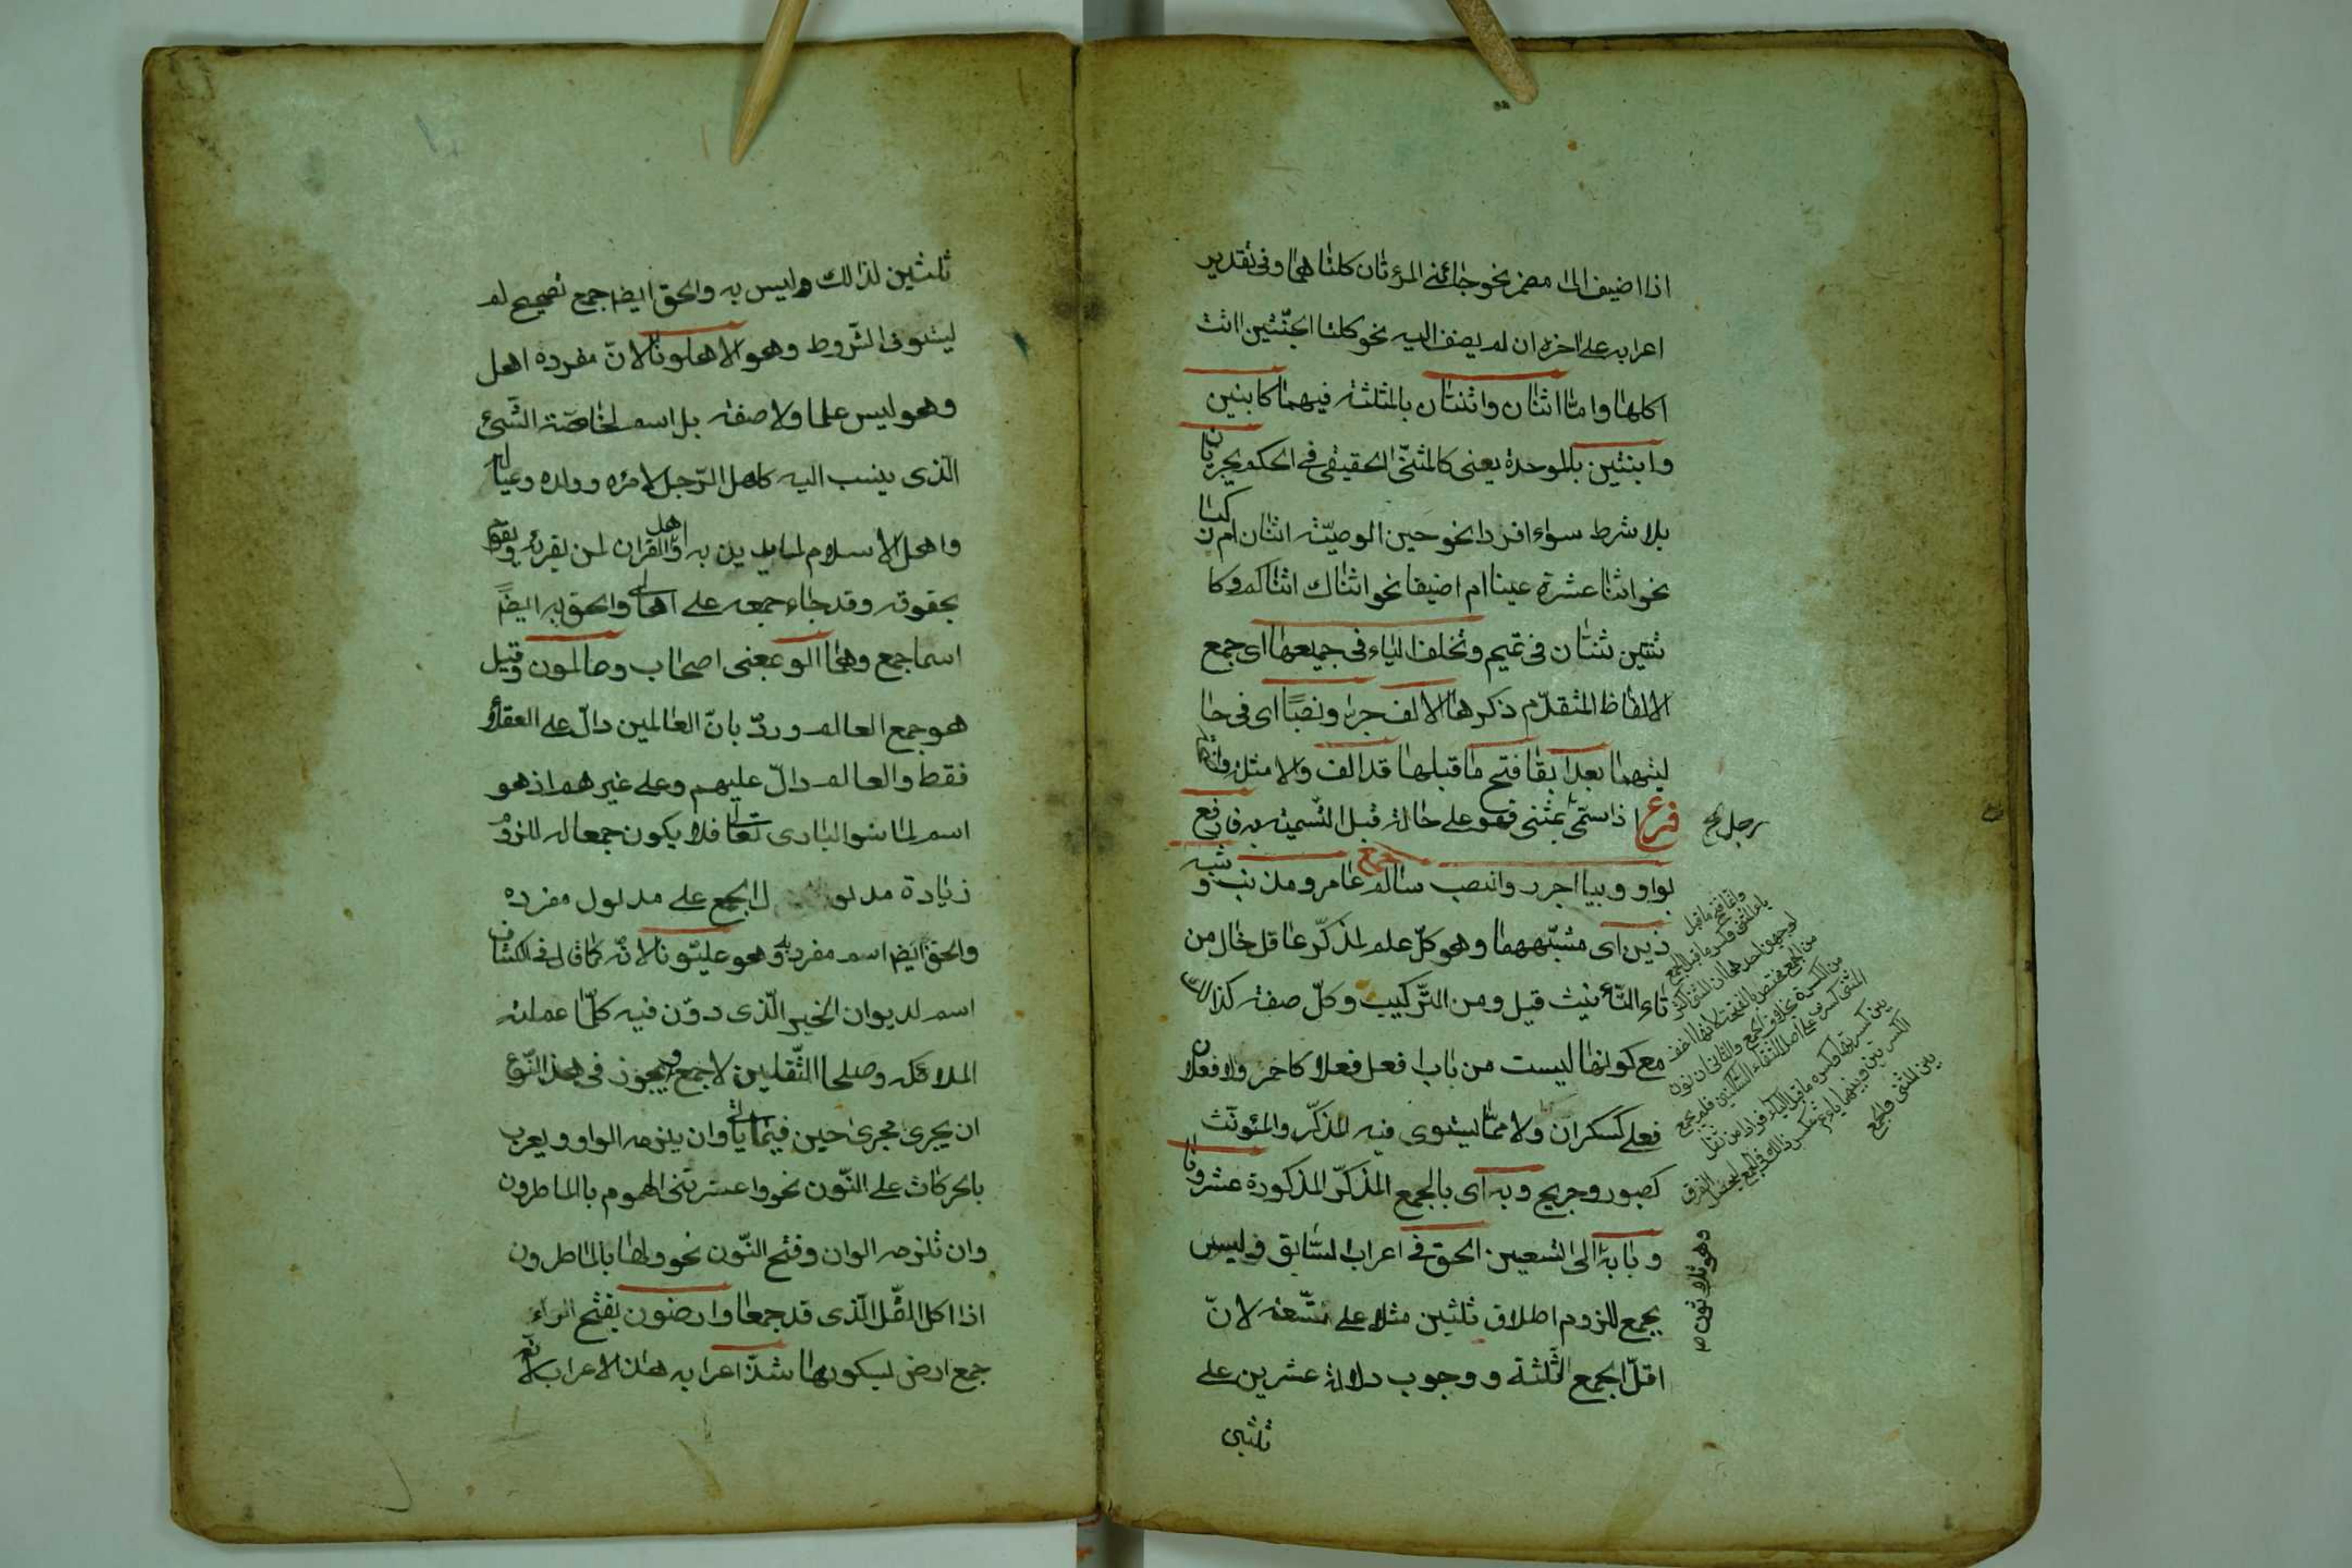 اذا اضيف الى مضمر نحو جائنى المرئتان كلتاهما وفى تقدير
اعرابه على اخره ان لم يضف اليه نحو كلتا الجنّتين اتت
اكلها وامّا اثنان واثنتان بالمثلثة فيهما كابنين
وابنتين بالموحدة يعنى كالمثنّى الحقيقى فى الحكم يجريان
بلا شرط سواء افردا نحو حين الوصيّة اثنان ام ركبا
نحو اثنتا عشرة عينا ام اضيفا نحو اثناك اثناكم وكا
ثنتين ثنتان فى تميم وتخلف الياء فى جميعها اى جمع
الالفاظ المتقدّم ذكرها الالف جرا ونصبًا اى فى حا
ليتهما بعد ابقا فتح ما قبلها قد الف والامثلة
فرع اذا سمّى بمثنى فهو على حاله قبل التسمية به وارفع
بواو وبيا اجرر وانصب سالم جمع عامر ومذنب وشبه
ذين اى مشبّههما وهو كلّ علم لمذكّر عاقل خال من
تاء التأنيث قيل ومن التّركيب وكلّ صفة كذالك
مع كونها ليست من باب افعل فعلاء كاحمر ولا فعلان
فعلى كسكران ولا ممّا يستوى فيه المذكّر والمؤنّث
كصبور وجريح وبه اى بالجمع المذكّر المذكورة عشرونا
وبابه الى التسعين الحق فى اعراب السّابق وليس
بجمع للزوم اطلاق ثلثين مثلا على تتّسعة لانّ
اقلّ الجمع الثّلثة ووجوب دلالة عشرين على
ثلثين
رجل
وامّا فتح ما قبل
ياء المثنى وكسر ما قبل الجمع
لوجهين احدهما ان المثنى اكثر
من الجمع فخصّ بالفتحة لانها اخف
من الكسرة بخلاف الجمع والثانى ان نون
وهو ثلاثون
ثلثين لذالك وليس به والحق ايضا جمع تصحيح لم
يستوفى الشّروط وهو الاهلونا لانّ مفرده اهل
وهو ليس علما ولا صفة بل اسم لخاصّة الشّئ
الّذى ينسب اليه كاهل الرّجل لامرئه وولده وعياله
واهل الاسلام لمن يدين به واهل القران لمن يقرئه ويقوم
بحقوقه وقد جاء جمعه على اهالى والحق به ايضاً
اسما جمع وهما الو بمعنى اصحاب وعالمون وقيل
هو جمع العالم وردّ بانّ العالمين دالّ على العقلاء
فقط والعالم دالّ عليهم وعلى غيرهم اذ هو
اسم لما سوا البارى تعالى فلا يكون جمعا له للزوم
زيادة مدلول الجمع على مدلول مفرده
والحق ايضا اسم مفرد وهو عليّونا لانّه كما قال فى الكشاف
اسم لديوان الخير الّذى دوّن فيه كلّما عملته
الملائكه وصلحا الثّقلين لا جمع ويجوز فى هذا النّوع
ان يجرى مجرى حين فيما ياتى وان يلزمه الواو ويعرب
بالحركات على النّون نحو واعترتنى الهموم بالماطرون
وان تلزمه الواو وفتح النّون نحو ولها بالماطرون
اذا اكل النّمل الّذى قد جمعا وارضون بفتح الراء
جمع ارض بسكونها شذّ اعرابه هذا الاعراب لانّه